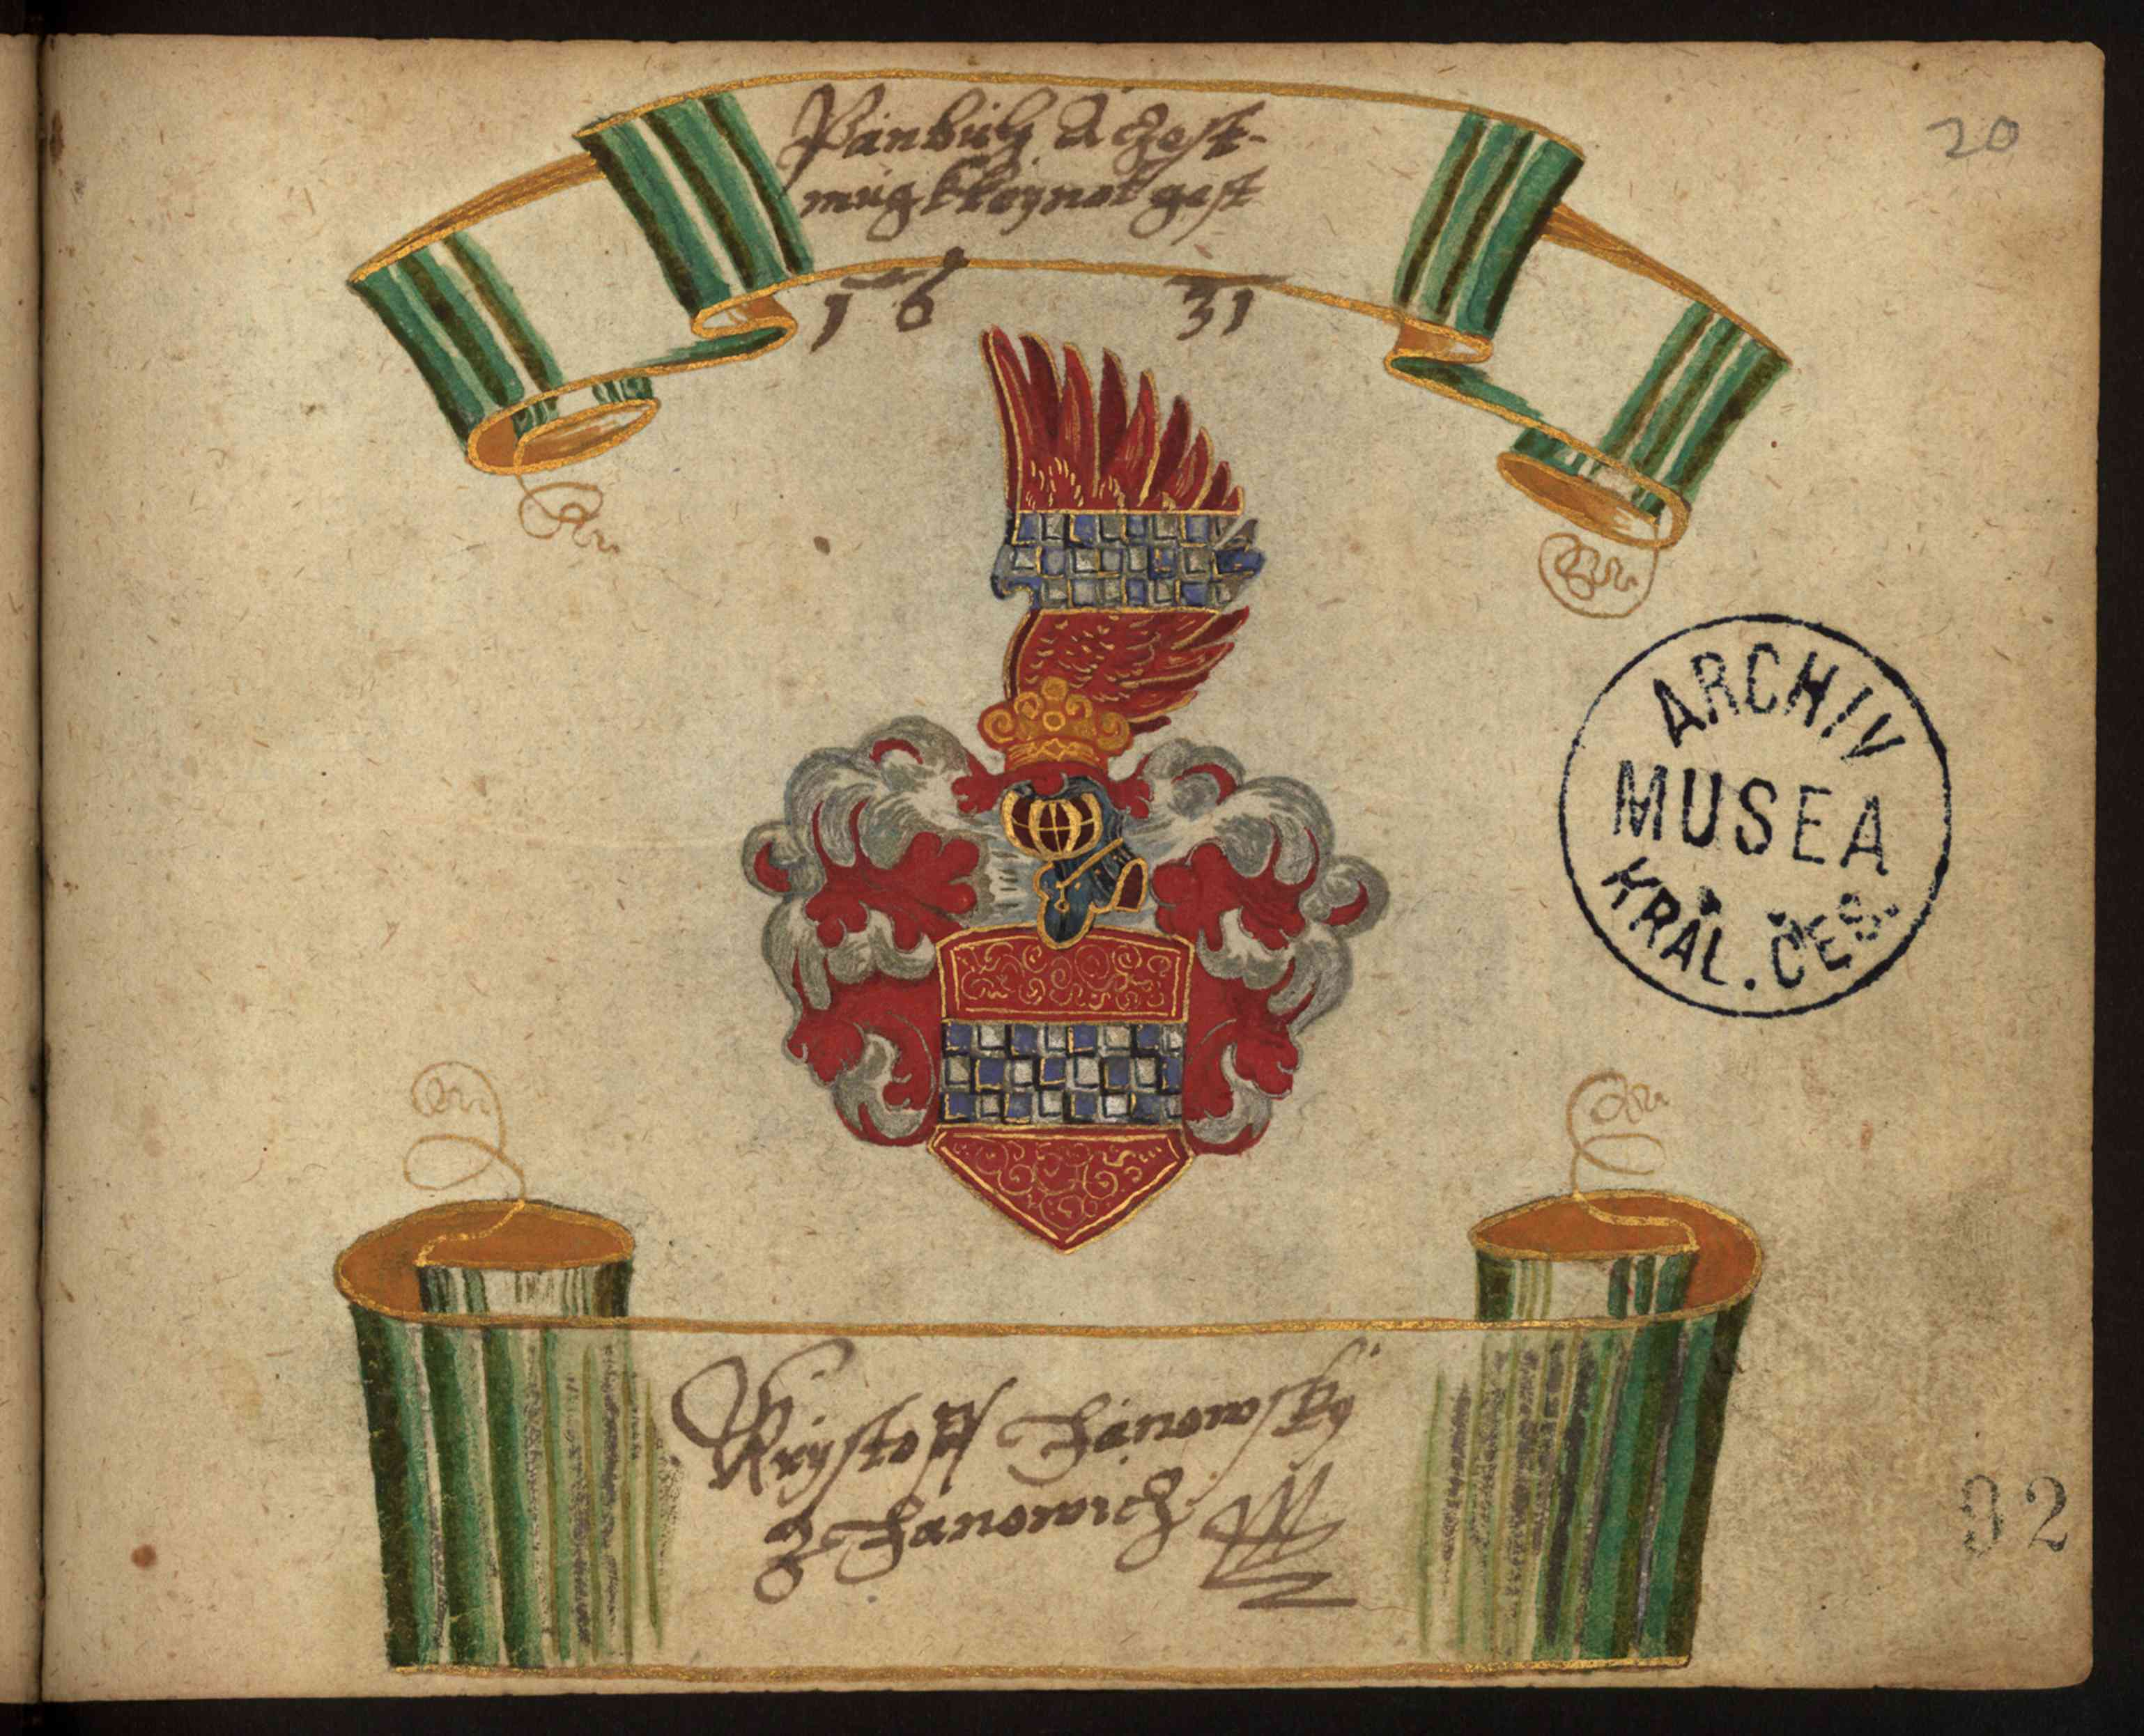 Panbuh a czest
mug kleynot gest
1631
20
ARCHIV
MUSEA
KRÁL. ČES.
Krysstoff Janowsky
z Janowicz
92